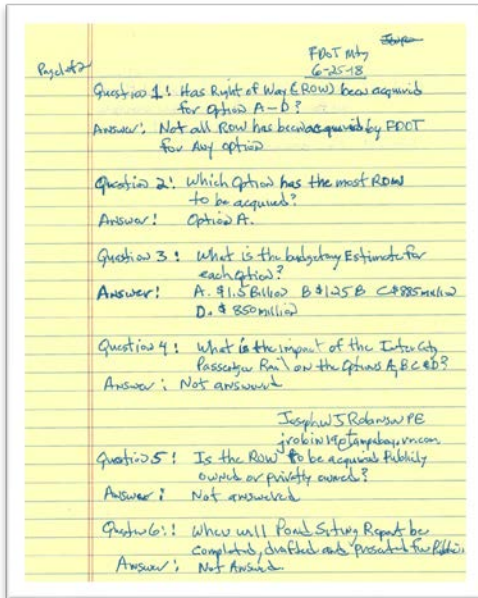 FDOT Mtg
Page 1 of 2
6-25-18
Question 1: Has Right of Way (ROW) been acquired
for Option A-D?
Answer: Not all ROW has been acquired by FDOT
for Any option
Question 2: Which Option has the most ROW
to be acquired?
Answer: Option A.
Question 3: What is the budgetary Estimate for
each option?
Answer: A. $1.5 Billion B $1.25 B C $885 million
D. $850 million
Question 4: What is the impact of the InterCity
Passenger Rail on the Options A, B C & D?
Answer: Not answered
Joseph W J Robinson PE
Question 5: Is the ROW to be acquired Publicly
owned or privately owned?
Answer: Not answered
Question 6: When will Pond Siting Report be
completed, drafted and presented for Public.
Answer: Not Answered